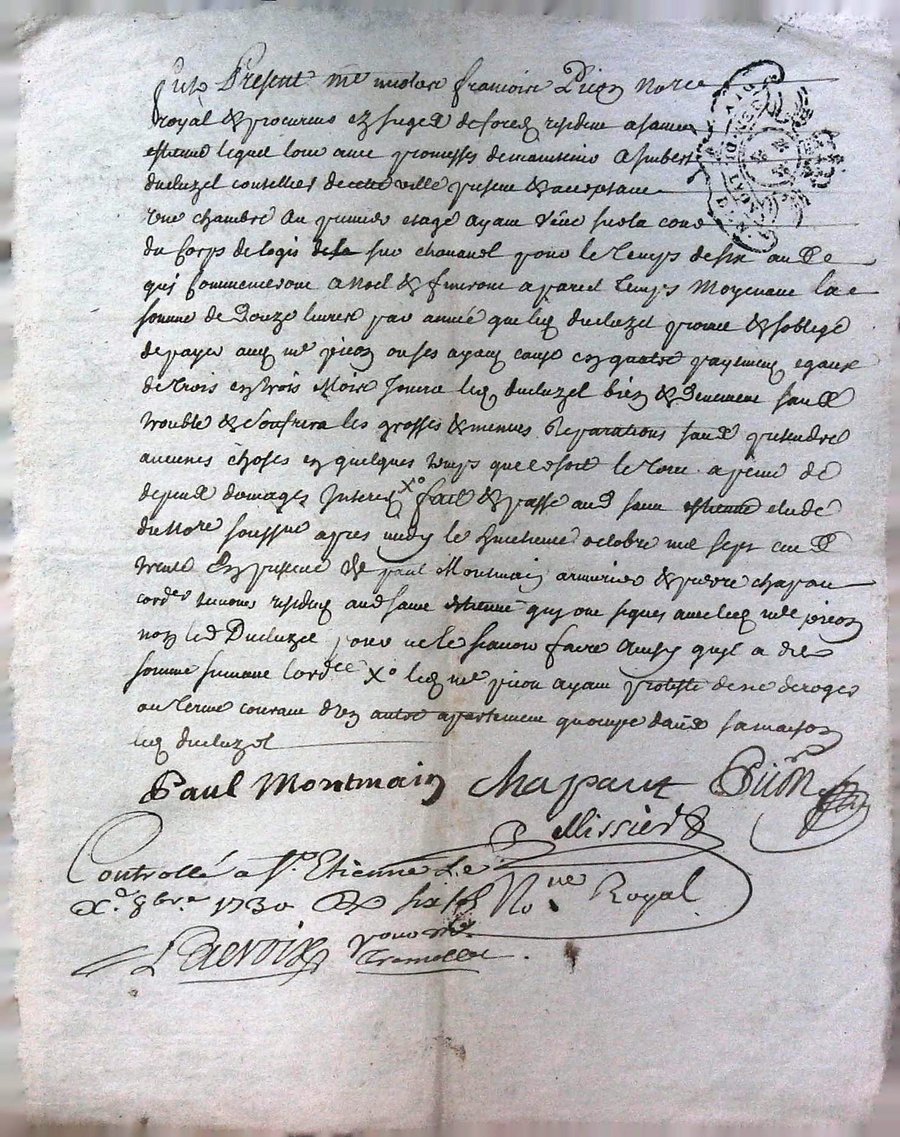 fut Present me nicolas françois Picon Nore
royal & procureur ez sieges de forez residant a saint
estienne lequel loue avec promesses de maintenir a
ducluzel coutellier de cette ville present & acceptant
Une chambre du premier etage ayant veüe sur la cour
du Corps de logis pour le temps de six
qui commenceront a Noel & finiront a pareil temps Moyenant la
somme de Douze livres par année que led ducluzel promet & soblige
de payer aud me picon ou ses ayant cause en quatre payement egaux
de trois en trois Mois Jouira led ducluzel bien & sans
trouble & Soufrira les grosses & menues Reparations sans pretendre
aucunes choses en quelques temps que ce soit le tout a peine de
depens domages Interets Xo fait & passé aud saint estienne etude
du Nore soussigné apres midy le huictieme octobre mil sept cent
trente En presence de paul Montmain armurier & pierre chapau
cord temoins residant aud saint etienne qui ont signes avec led me picon
non led Ducluzel pour ne le scavoir faire Ainsy quil a dit
somme suivant lord Xo led me picon ayant protesté de ne deroger
au terme courant d'un autre appartement dans sa maison
led ducluzel
Paul Montmain chapaut Picon
Pellissier
Controllé a St Etienne Le
Xo 8bre 1730 six sols Nore Royal
Lacroix pour Mr
Tramollet